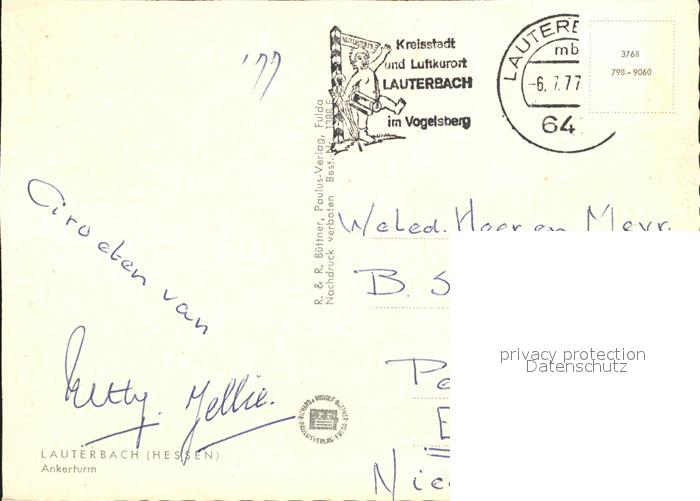 '77
Kreisstadt
und Luftkurort
LAUTERBACH
im Vogelsberg
LAUTERB
mb
-6.7.77
64
3768
798-9060
R. & R. Büttner, Paulus-Verlag, Fulda
Nachdruck verboten Best.-Nr.
Groeten van
Jellie.
Weled. Heer en Mevr.
B. S
Po
E
Nie
privacy protection
Datenschutz
LAUTERBACH (HESSEN)
Ankerturm